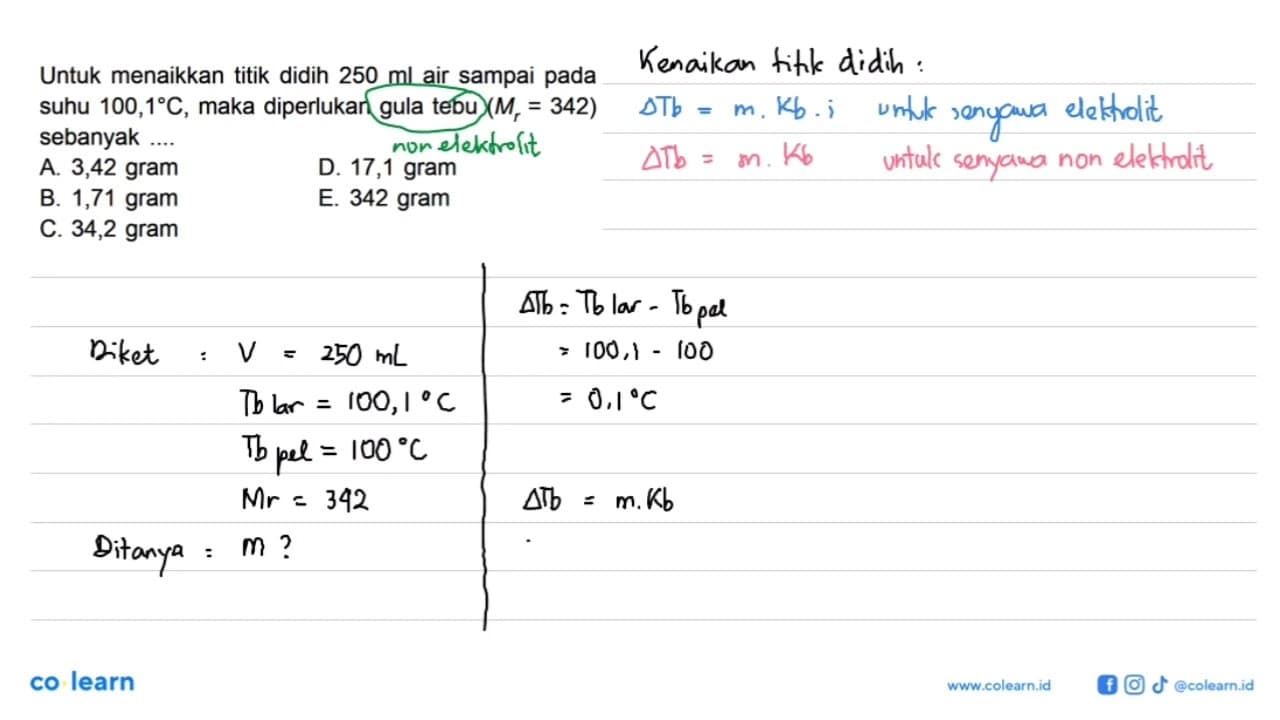 Untuk menaikkan titik didih 250 ml air sampai pada
suhu 100,1°C, maka diperlukan gula tebu (Mr = 342)
sebanyak ....
non elektrolit
A. 3,42 gram
B. 1,71 gram
C. 34,2 gram
D. 17,1 gram
E. 342 gram
Kenaikan titik didih :
ΔTb = m . Kb . i untuk senyawa elektrolit
ΔTb = m . Kb untuk senyawa non elektrolit
Diket : V = 250 mL
Tb lar = 100,1 °C
Tb pel = 100 °C
Mr = 342
Ditanya : m ?
ΔTb = Tb lar - Tb pel
= 100,1 - 100
= 0,1 °C
ΔTb = m . Kb
co learn
www.colearn.id
@colearn.id